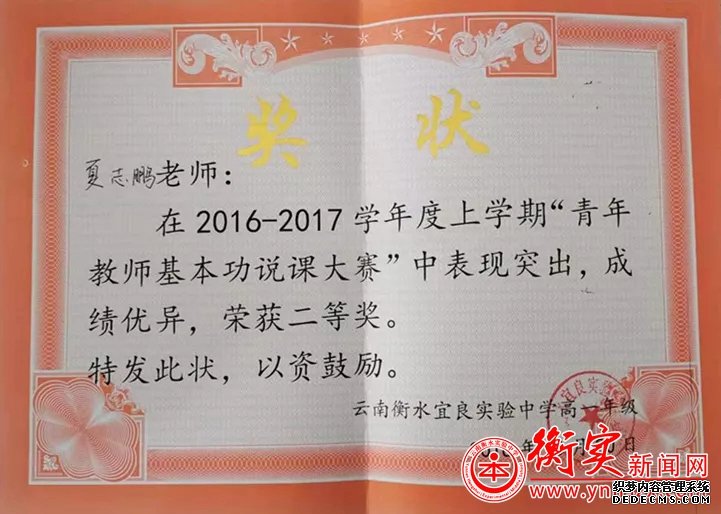 奖 状
夏志鹏老师：
在2016-2017学年度上学期“青年
教师基本功说课大赛”中表现突出，成
绩优异，荣获二等奖。
特发此状，以资鼓励。
云南衡水宜良实验中学高一年级
日
衡实新闻网
织梦内容管理系统
DEDECMS.COM
www.yn